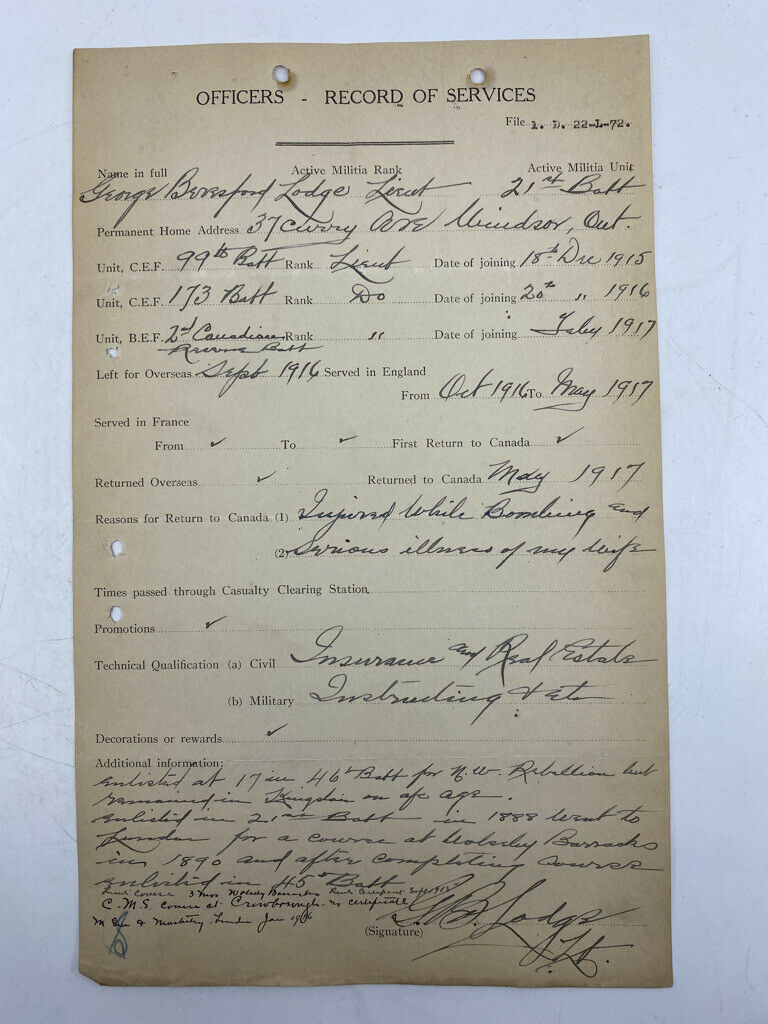 OFFICERS - RECORD OF SERVICES
File 1. D. 22-L-72.
Name in full Active Militia Rank Active Militia Unit
George Beresford Lodge Lieut 21st Batt
Permanent Home Address 37 Curry Ave Windsor, Ont.
Unit, C.E.F. 99th Batt Rank Lieut Date of joining 18th Dec 1915
Unit, C.E.F. 173 Batt Rank Do Date of joining 20th " 1916
Unit, B.E.F. 2nd Canadian Rank " Date of joining Feby 1917
Reserve Batt
Left for Overseas Sept 1916 Served in England
From Oct 1916 To May 1917
Served in France
From ✓ To ✓ First Return to Canada ✓
Returned Overseas ✓ Returned to Canada May 1917
Reasons for Return to Canada (1) Injured While Bombing and
(2) Serious illness of my Wife
Times passed through Casualty Clearing Station
Promotions ✓
Technical Qualification (a) Civil Insurance and Real Estate
(b) Military Instructing & Etc
Decorations or rewards ✓
Additional information:
enlisted at 17 in 46th Batt for N.W. Rebellion but
remained in Kingston on a/c age.
enlisted in 21st Batt in 1888 Went to
London for a course at Wolseley Barracks
in 1890 and after completing course
enlisted in 45th Batt
Lieut Course 3 Mos Wolsely Barracks Lieut Certificate Sept 1915
C.M.S. course at Crowborough no certificate
M & Musketry London Jan 1916
G. B. Lodge
Lt.
(Signature)